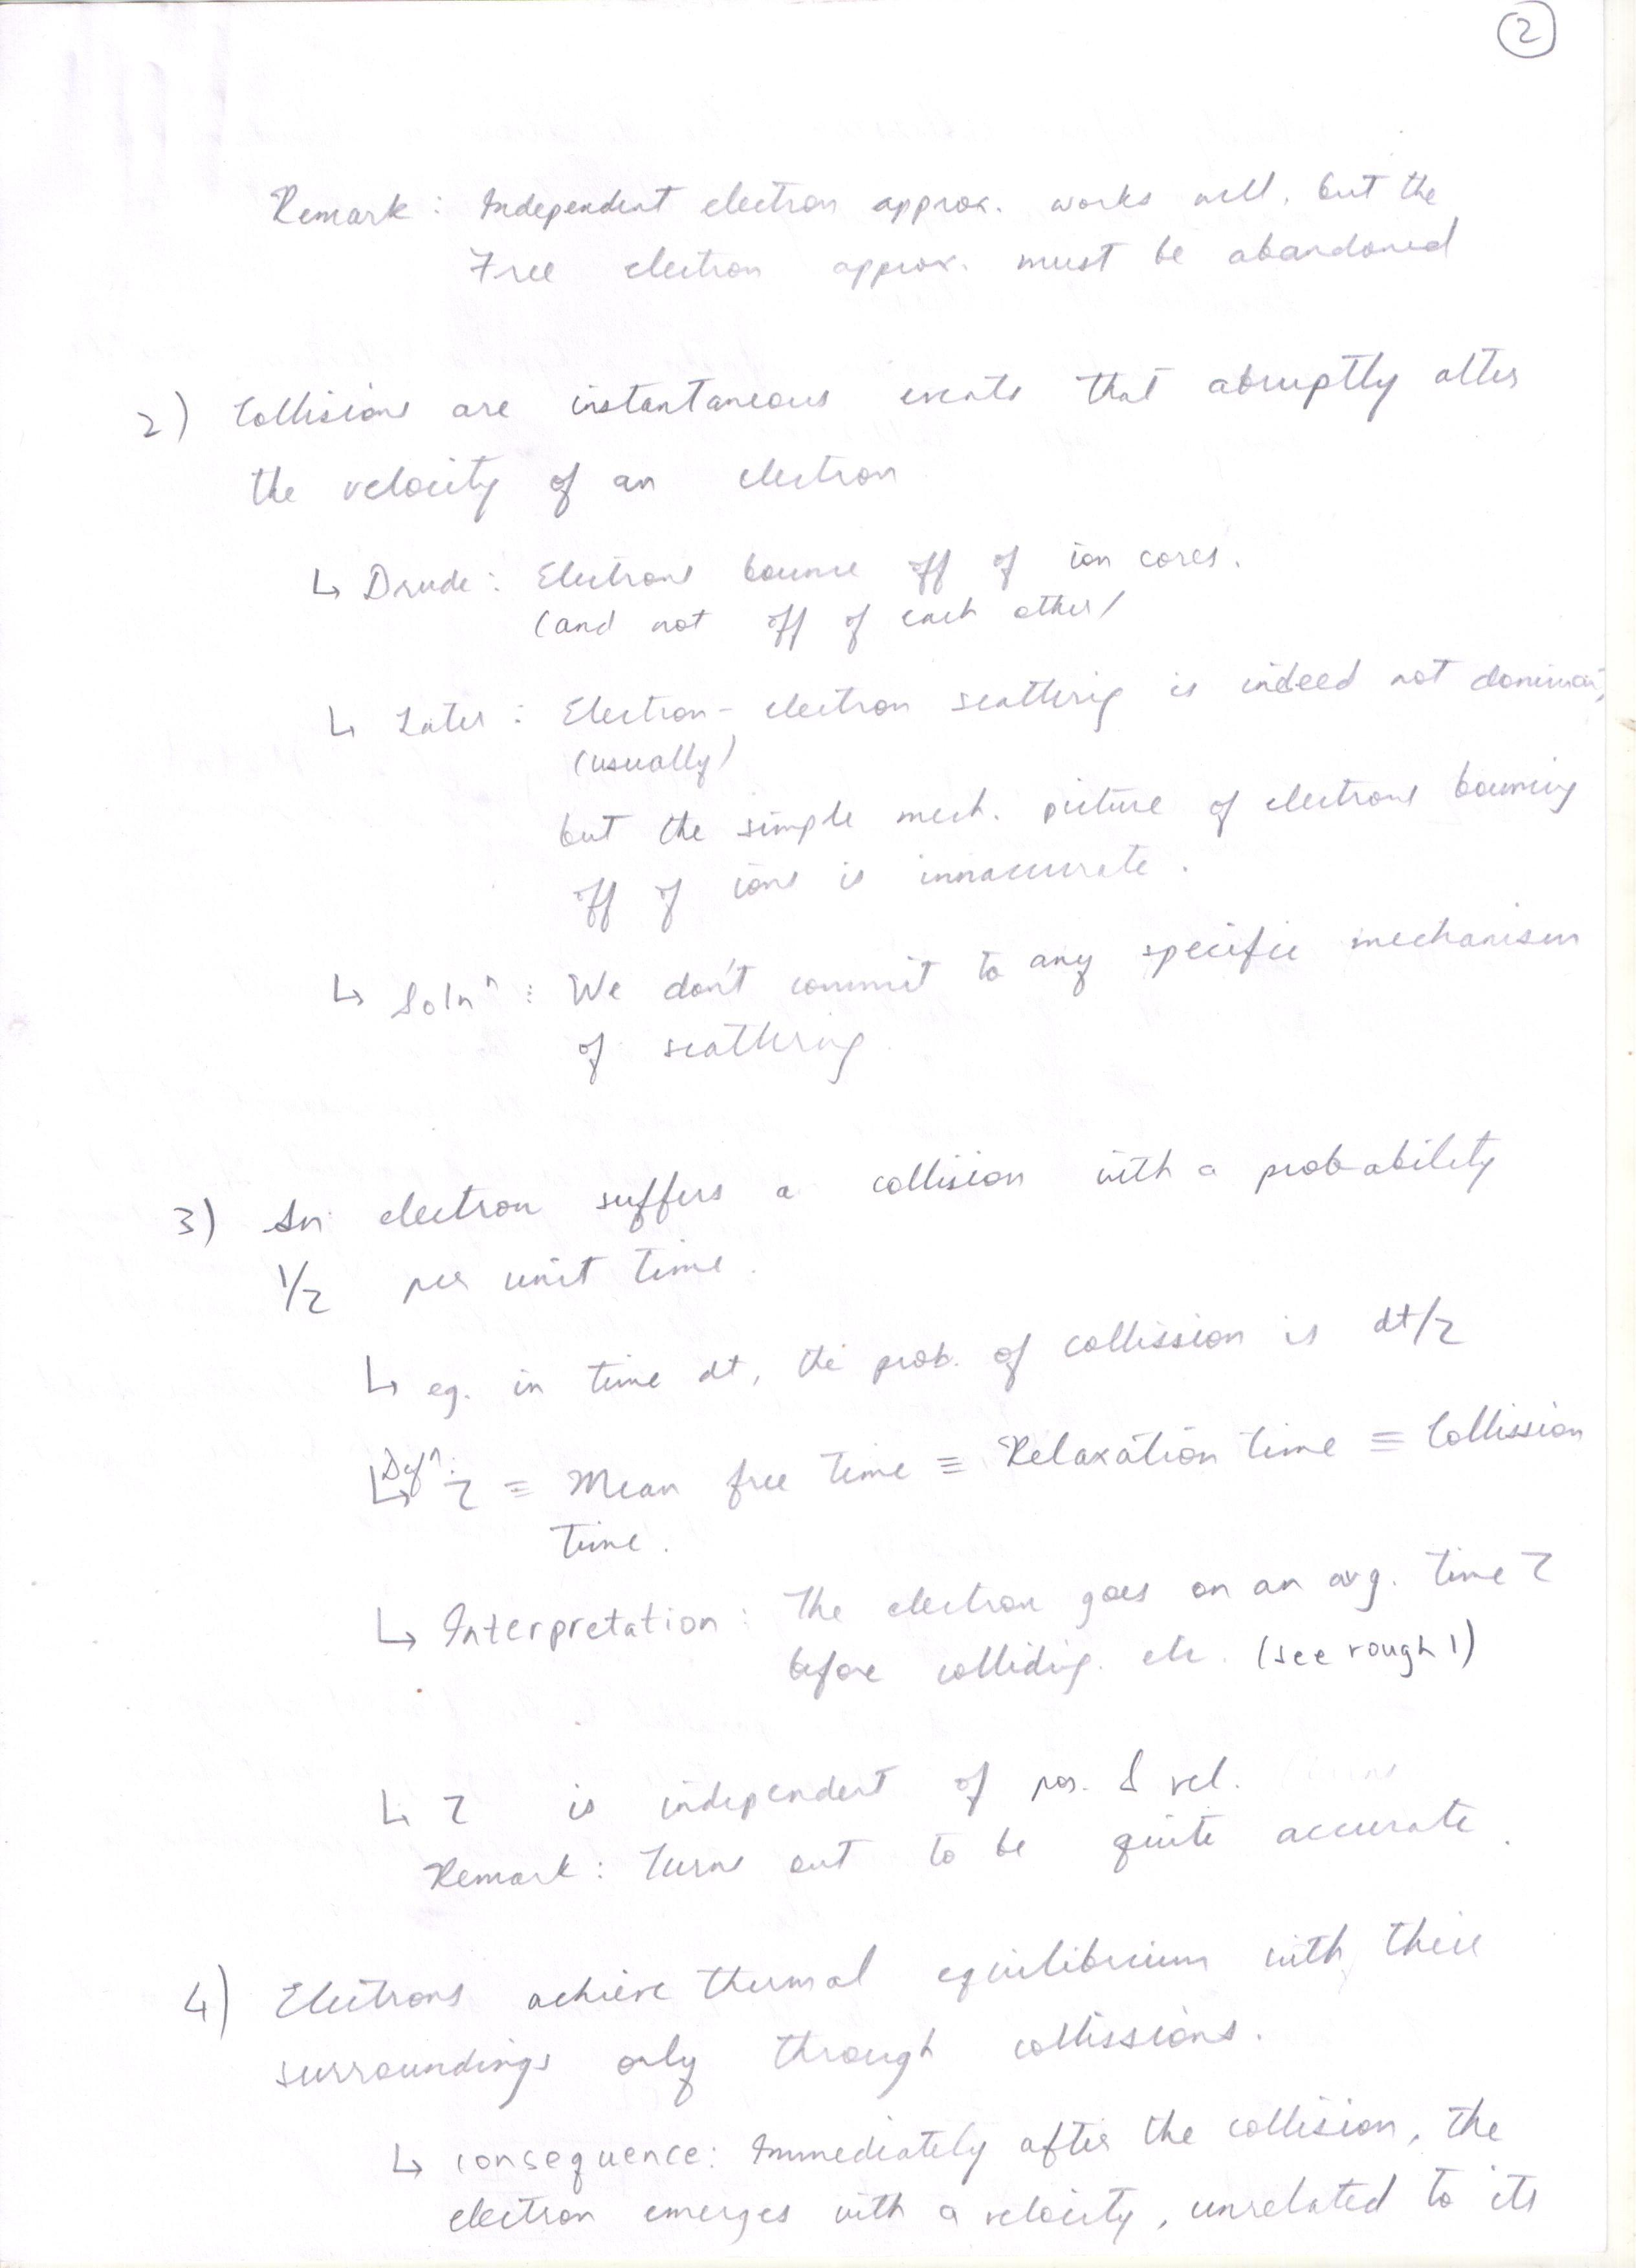 2
Remark : Independent electron approx. works well, but the
Free electron approx. must be abandoned
2) Collisions are instantaneous events that abruptly alter
the velocity of an electron
↳ Drude : Electrons bounce off of ion cores.
(and not off of each other)
↳ Later : Electron-electron scattering is indeed not dominant,
(usually)
but the simple mech. picture of electrons bouncing
off of ions is innaccurate.
↳ Solnⁿ : We don't commit to any specific mechanism
of scattering
3) An electron suffers a collision with a probability
1/τ per unit time.
↳ eg. in time dt, the prob. of collission is dt/τ
↳ Defⁿ: τ ≡ Mean free time ≡ Relaxation time ≡ Collission
time.
↳ Interpretation : The electron goes on an avg. time τ
before colliding. etc. (see rough 1)
↳ τ is independent of pos. & vel.
Remark : Turns out to be quite accurate.
4) Electrons achieve thermal equilibrium with their
surroundings only through collissions.
↳ consequence: Immediately after the collision, the
electron emerges with a velocity, unrelated to its